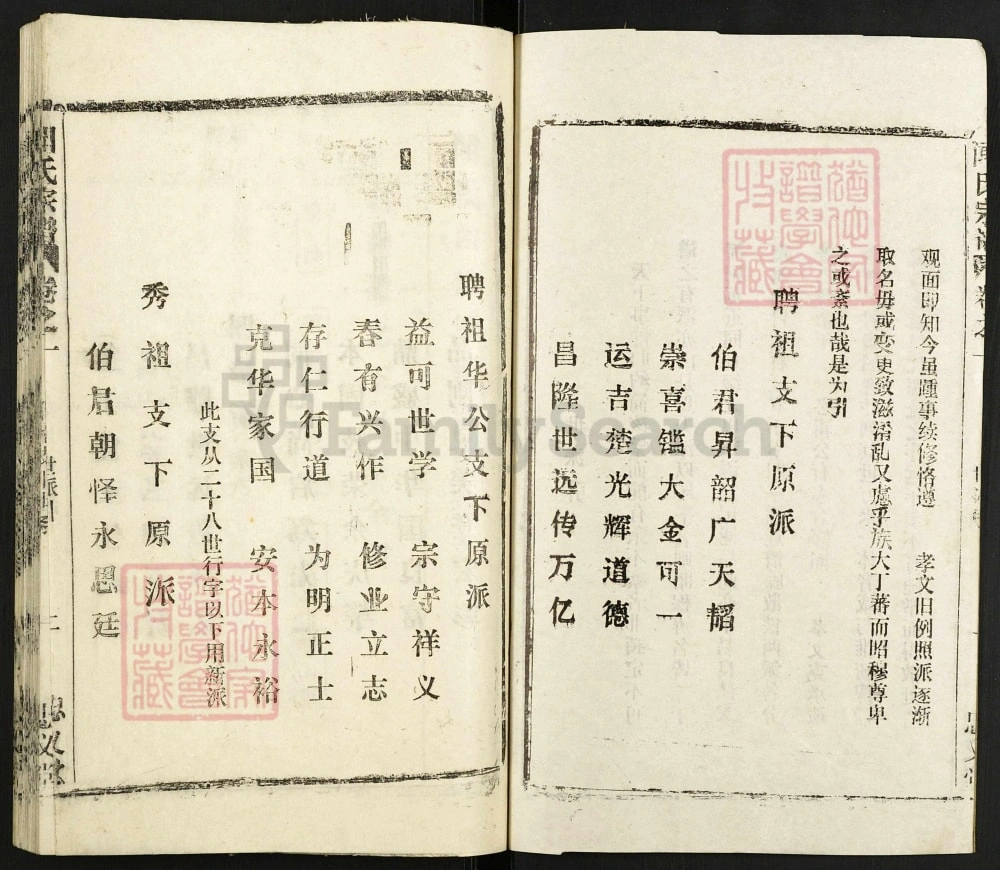 观面即知今虽踵事续修恪遵 孝文旧例照派逐渐
取名毋或变更致滋淆乱又虑乎族大丁蕃而昭穆尊卑
之或紊也哉是为引
聘祖支下原派
伯君昇韶广天韬
崇喜鑑大金可一
运吉楚光辉道德
昌隆世远传万亿
聘祖华公支下原派
益可世学 宗守祥义
春有兴作 修业立志
存仁行道 为明正士
克华家国 安本永裕
此支从二十八世行字以下用新派
秀祖支下原派
伯君朝怿永恩廷
氏宗谱 卷之一
二
忠义堂
FamilySearch